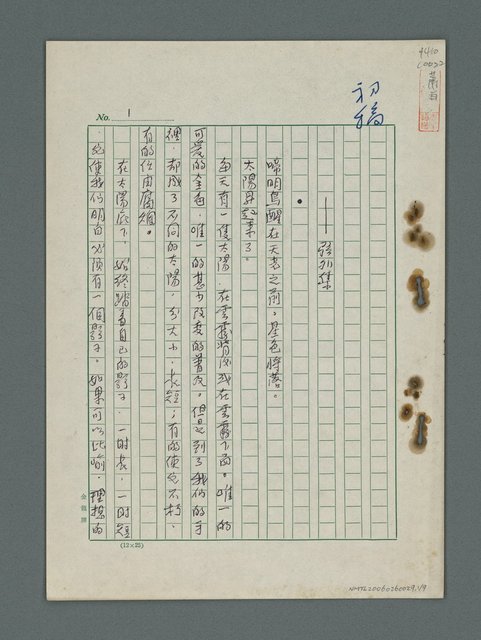 初稿
No. 1
4410
蕭白
——發列集
鳴鳥醒在天老之前。星色將落。
太陽昇起來了。
每天有一隻太陽,在雲霧背後或在雲霧下面。唯一的
可愛的金色,唯一的甚少改變的普及。但是到了我們的手
裡,却成了不同的太陽,分大小,長短;有的使它不朽,
有的任由腐爛。
在太陽底下,始終踏着自己的影子,一時長,一時短
,它使我們明白必須有一個影子。如果可以比喻,理想的
(12×25)
NMTL20060260029,1/9